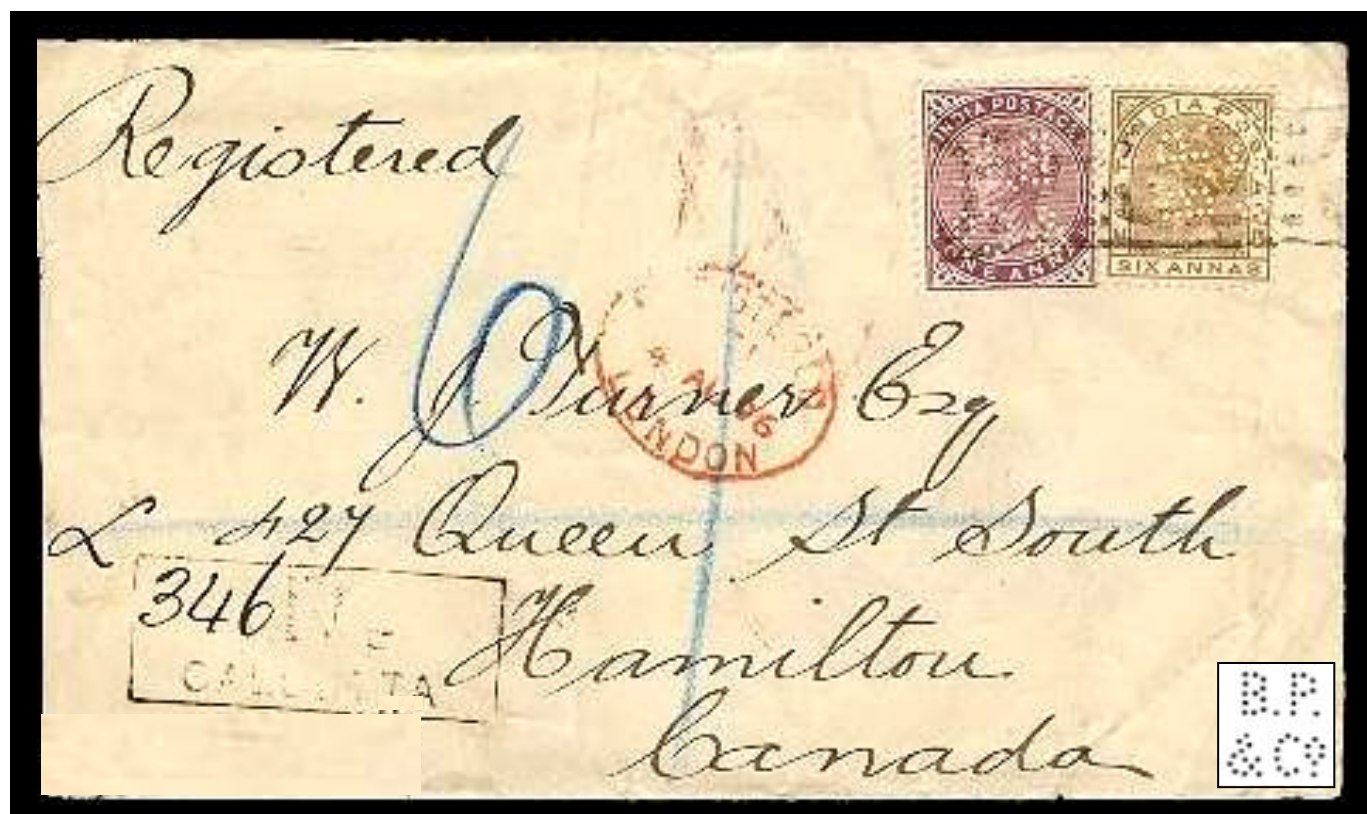 Registered
INDIA POSTAGE
ONE ANNA
INDIA POSTAGE
SIX ANNAS
6
LONDON
W. J. Turner Esq
427 Queen St South
346
CALCUTTA
Hamilton
Canada
B.P.
& Co